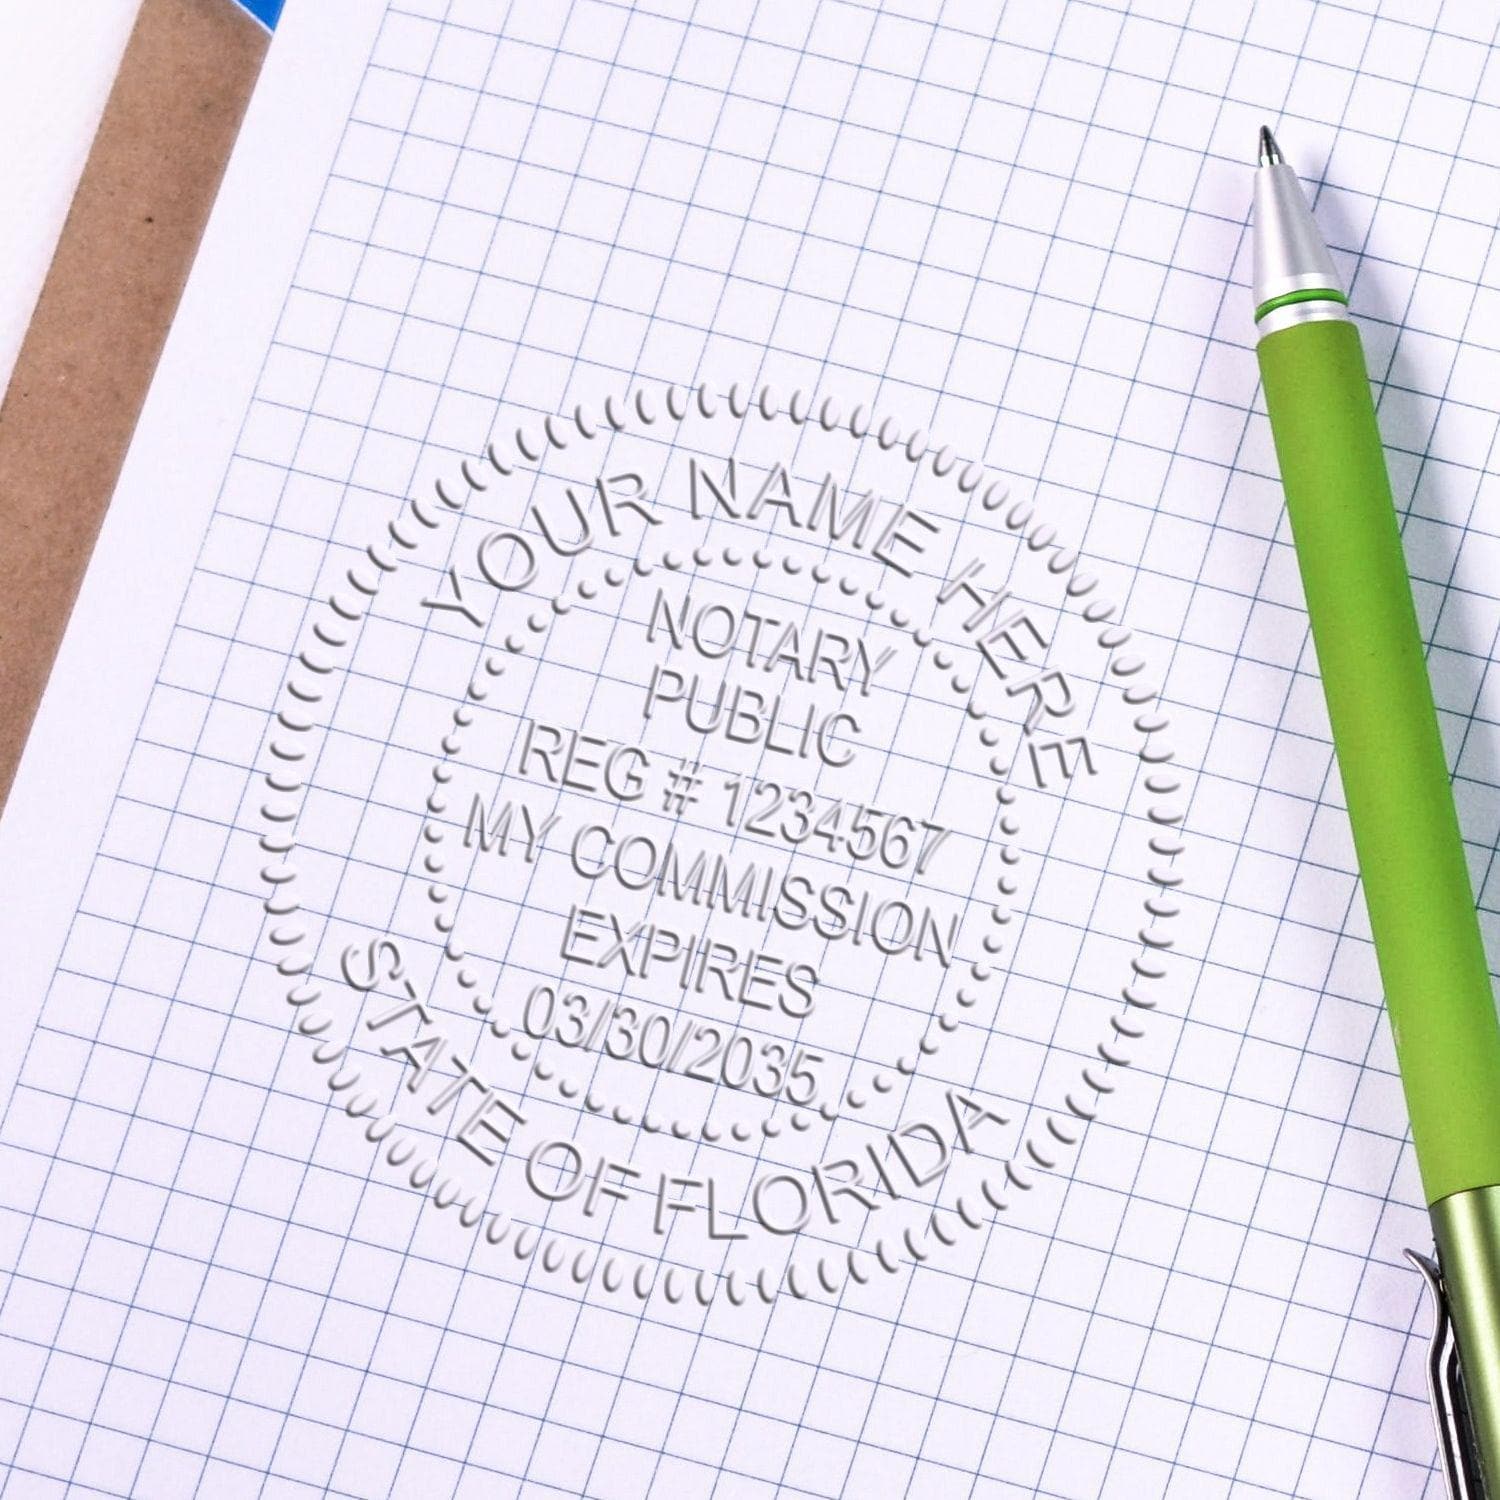 YOUR NAME HERE
NOTARY
PUBLIC
REG # 1234567
MY COMMISSION
EXPIRES
03/30/2035
STATE OF FLORIDA